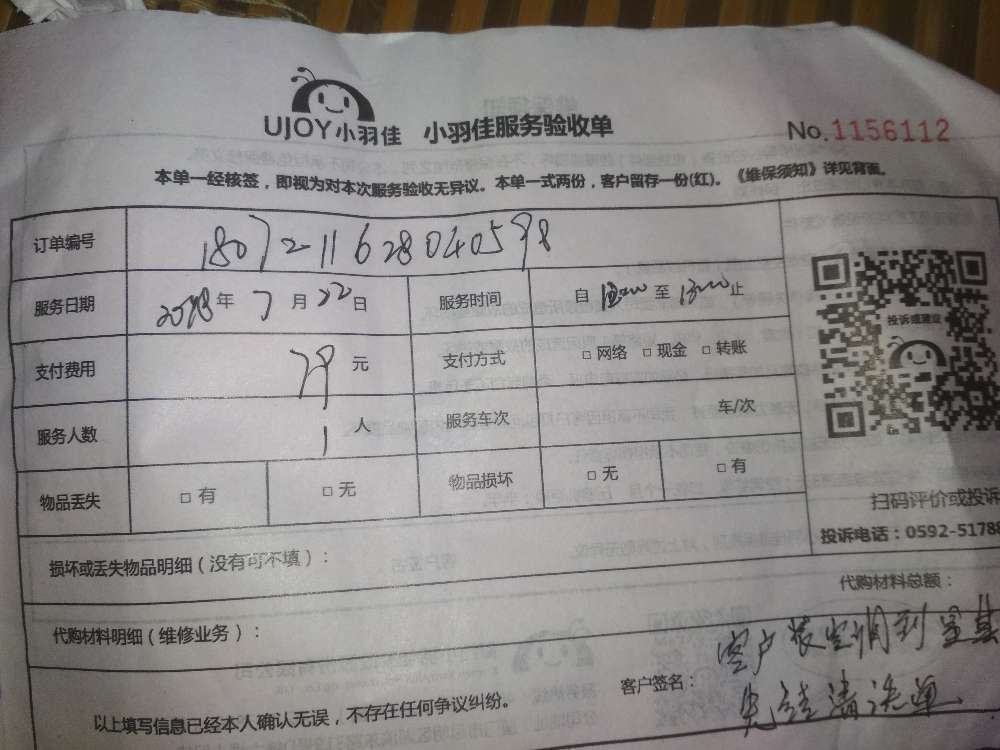 UJOY小羽佳 小羽佳服务验收单 No.1156112
本单一经核签，即视为对本次服务验收无异议。本单一式两份，客户留存一份(红)。《维保须知》详见背面。
订单编号 1807211628040598
服务日期 2018年7月22日 服务时间 自 至 止
支付费用 79元 支付方式 □网络 □现金 □转账
服务人数 1人 服务车次 车/次
物品丢失 □有 □无 物品损坏 □无 □有
投诉或建议
扫码评价或投诉
投诉电话：0592-5178
损坏或丢失物品明细（没有可不填）：
代购材料明细（维修业务）： 代购材料总额：
以上填写信息已经本人确认无误，不存在任何争议纠纷。 客户签名：
客户装空调到
清洗单